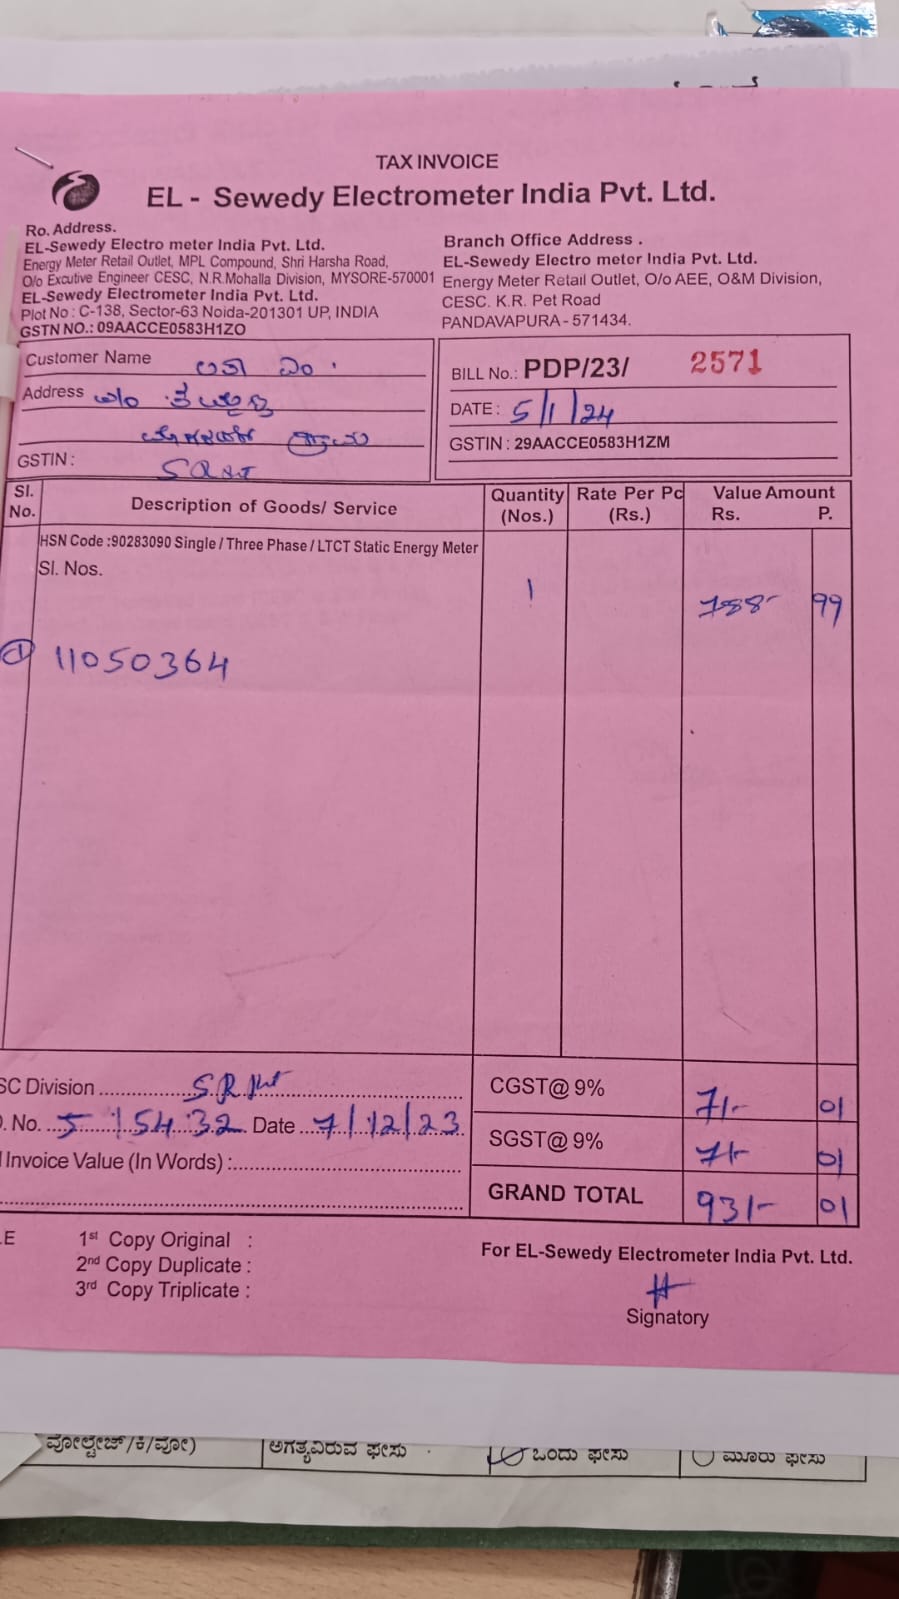 TAX INVOICE
EL - Sewedy Electrometer India Pvt. Ltd.
Ro. Address.
EL-Sewedy Electro meter India Pvt. Ltd.
Energy Meter Retail Outlet, MPL Compound, Shri Harsha Road,
O/o Excutive Engineer CESC, N.R.Mohalla Division, MYSORE-570001
EL-Sewedy Electrometer India Pvt. Ltd.
Plot No : C-138, Sector-63 Noida-201301 UP, INDIA
GSTN NO.: 09AACCE0583H1ZO
Branch Office Address .
EL-Sewedy Electro meter India Pvt. Ltd.
Energy Meter Retail Outlet, O/o AEE, O&M Division,
CESC. K.R. Pet Road
PANDAVAPURA - 571434.
Customer Name
Address
GSTIN :
BILL No.: PDP/23/ 2571
DATE : 5/1/24
GSTIN : 29AACCE0583H1ZM
Sl. No. Description of Goods/ Service Quantity (Nos.) Rate Per Pc (Rs.) Value Amount Rs. P.
HSN Code :90283090 Single / Three Phase / LTCT Static Energy Meter
Sl. Nos.
1 788- 99
1 11050364
SC Division
. No. 515432 Date 7/12/23
Invoice Value (In Words) :
CGST@ 9% 71/- 01
SGST@ 9% 71/- 01
GRAND TOTAL 931/- 01
LE
1st Copy Original :
2nd Copy Duplicate :
3rd Copy Triplicate :
For EL-Sewedy Electrometer India Pvt. Ltd.
Signatory
ವೋಲ್ಟೇಜ್/ಕಿ/ವೋ) ಅಗತ್ಯವಿರುವ ಫೇಸು ಒಂದು ಫೇಸು ಮೂರು ಫೇಸು